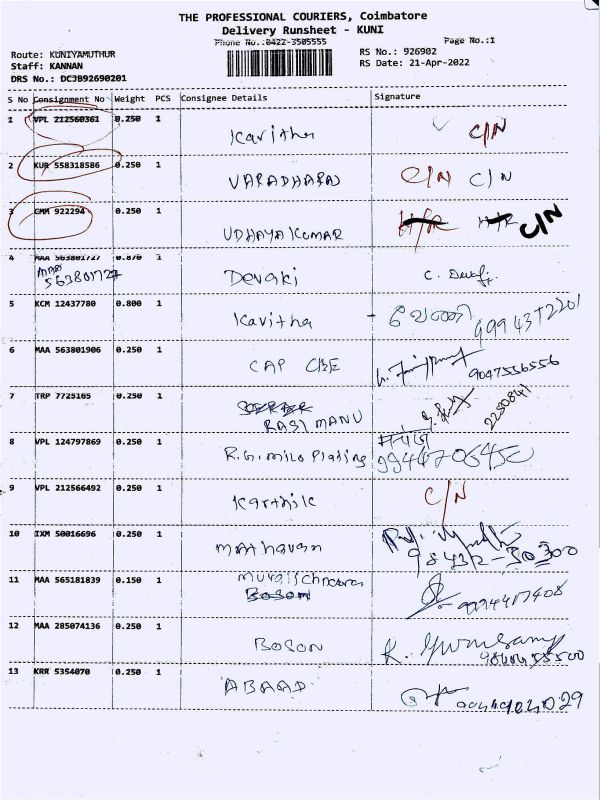 THE PROFESSIONAL COURIERS, Coimbatore
Delivery Runsheet - KUNI
Phone No.:0422-3505555 Page No.:1
Route: KUNIYAMUTHUR RS No.: 926902
Staff: KANNAN RS Date: 21-Apr-2022
DRS No.: DCJB92690201
S No Consignment No Weight PCS Consignee Details Signature
1 VPL 212560361 0.250 1
Kavitha C/N
2 KUR 558318586 0.250 1
VARADHARAJ C/N C/N
3 CMM 922294 0.250 1
UDHAYA KUMAR C/N
4 MAA 563801727 0.870 1
MAA 563801727 Devaki C. Devaki
5 KCM 12437780 0.800 1
Kavitha
6 MAA 563801906 0.250 1
CAP CBE 9047556556
7 TRP 7725165 0.250 1
RASI MANU 2250841
8 VPL 124797869 0.250 1
R.G. Plating
9 VPL 212566492 0.250 1
Karthik C/N
10 IXM 50016696 0.250 1
Mathavan 98432-50300
11 MAA 565181839 0.150 1
Boson
12 MAA 285074136 0.250 1
BOSON
13 KRR 5354070 0.250 1
ABAAD